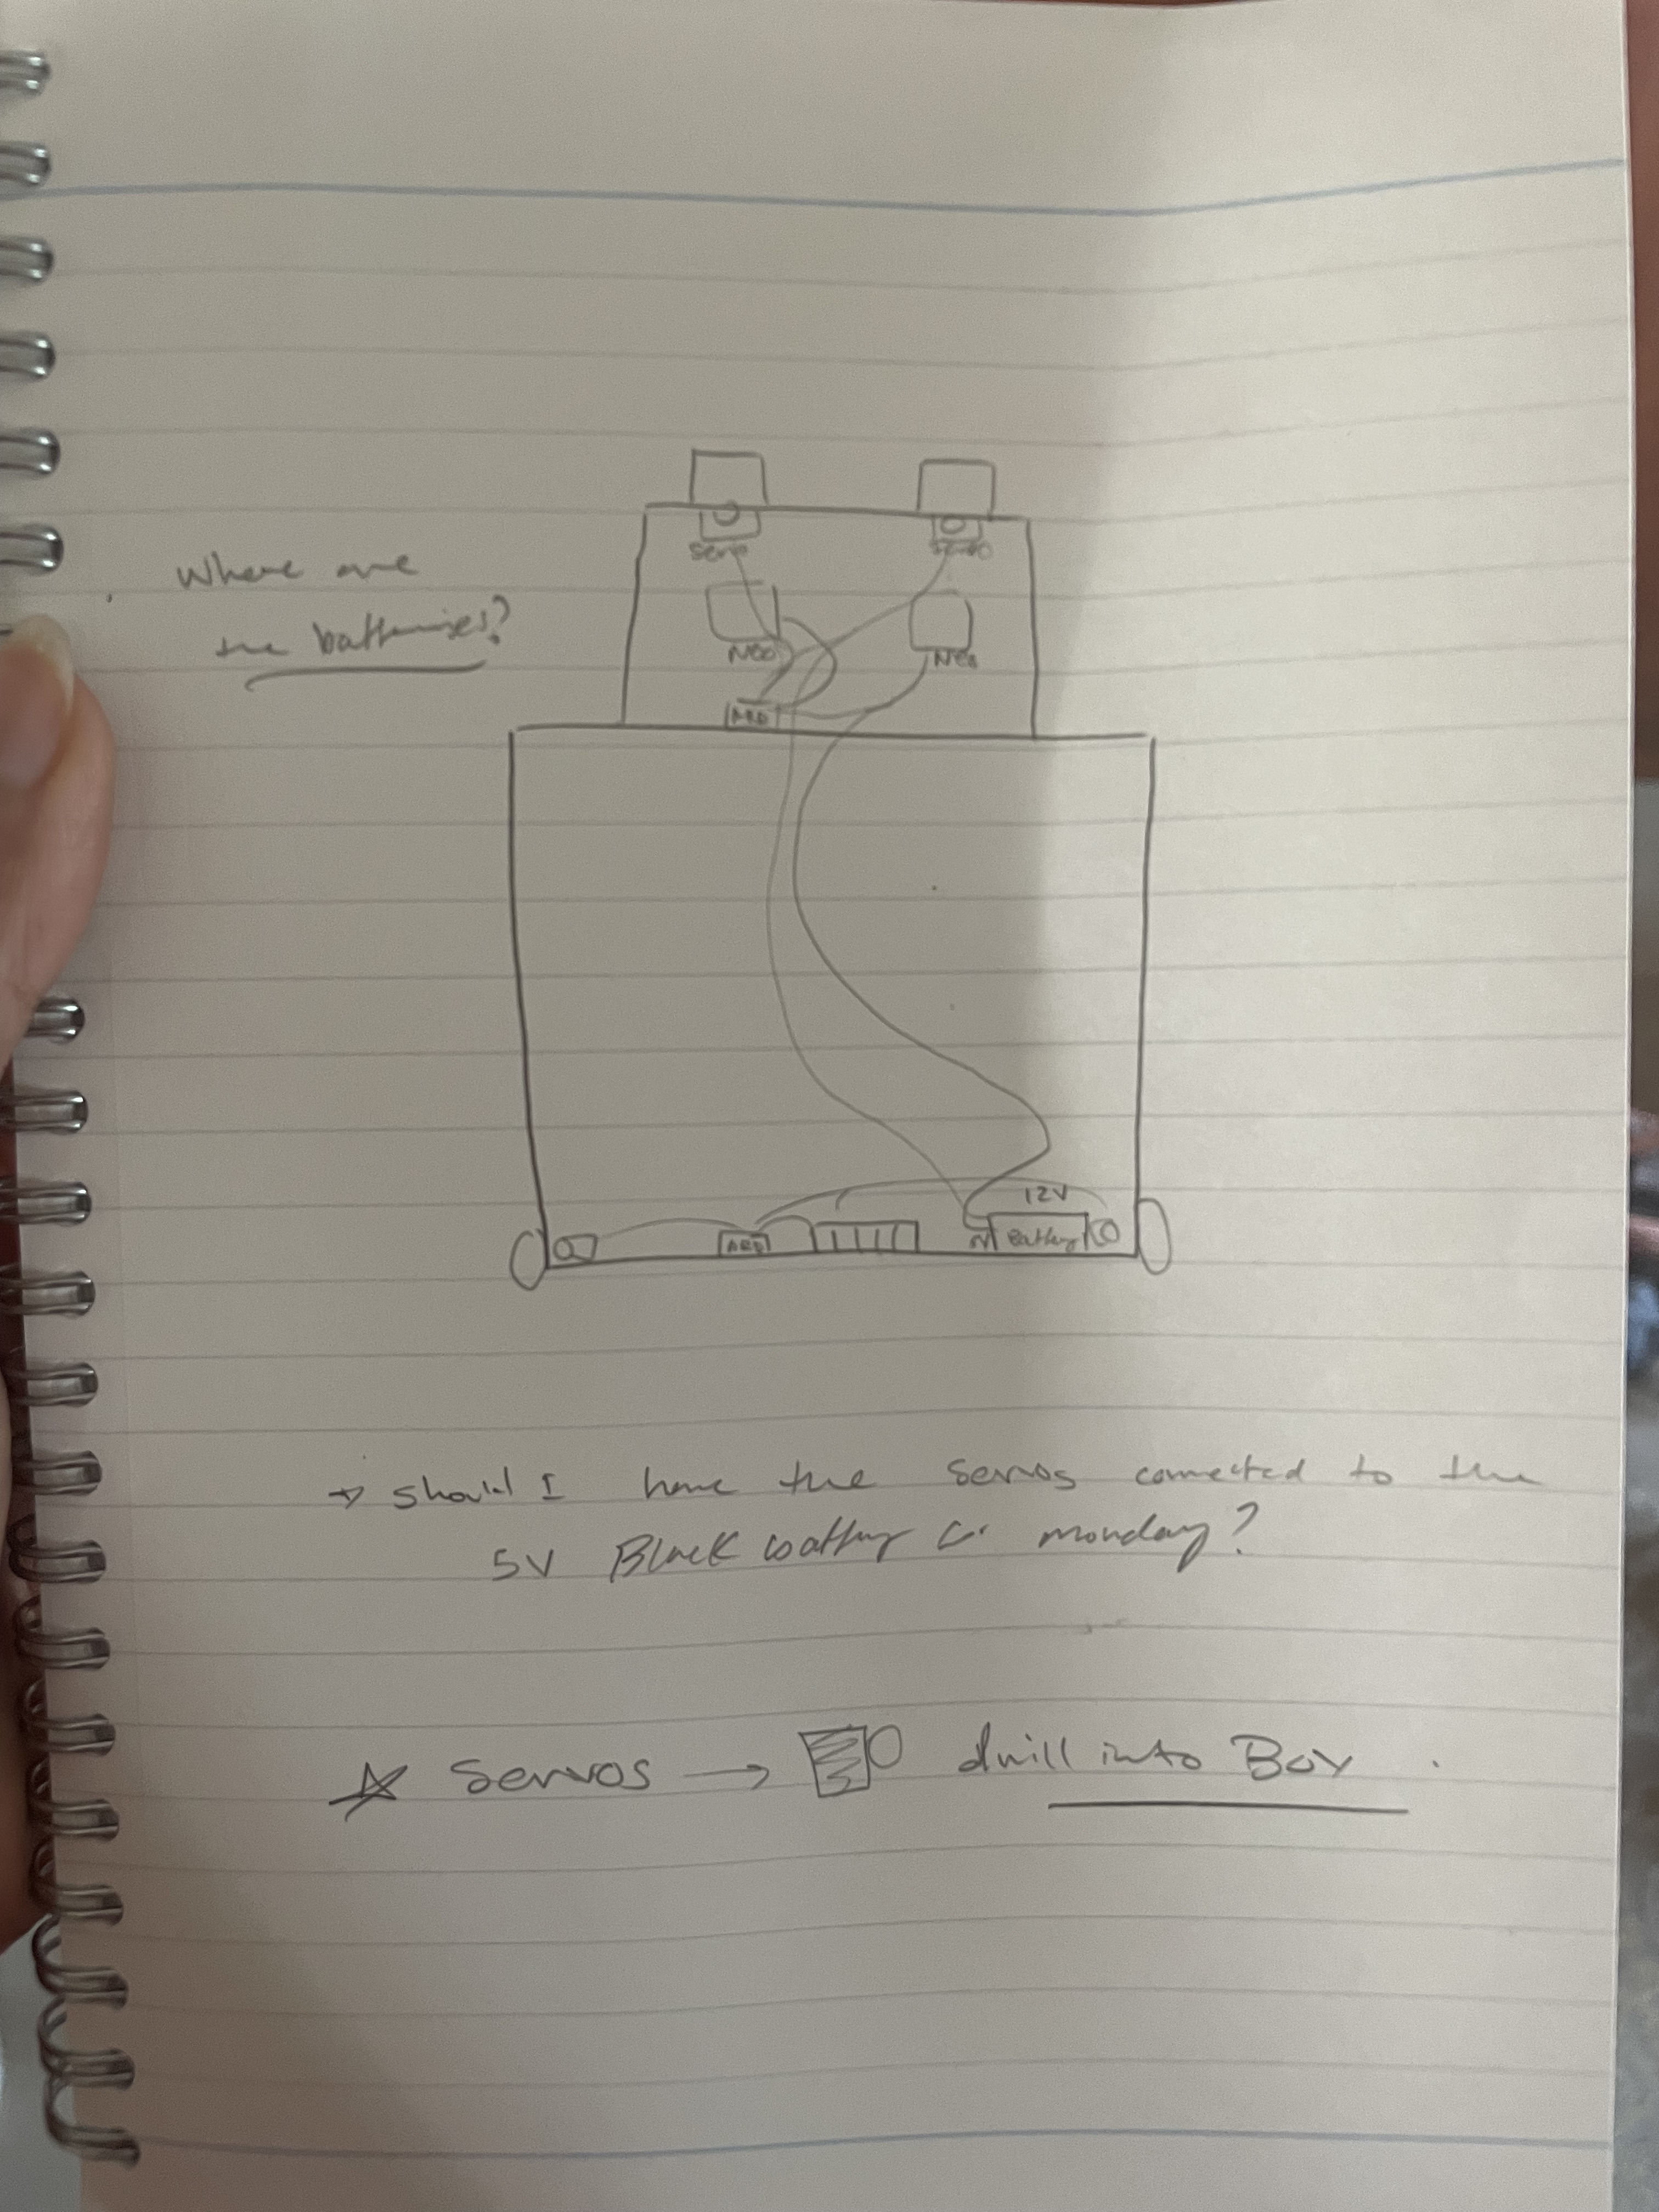 Where are
the batteries?
Servo
Servo
Neo
Neo
ARD
12V
ARD
Battery
→ should I have the servos connected to the
5V Black battery or monday?
☆ Servos → drill into Box.